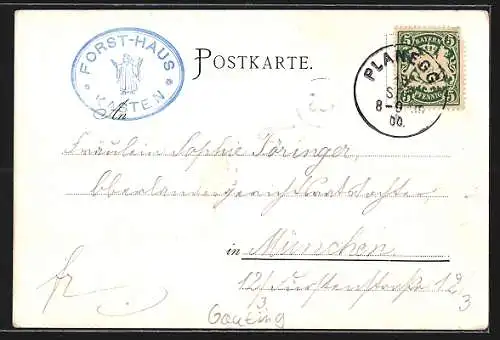 FORST-HAUS
KASTEN
POSTKARTE.
BAYERN
5 5
PFENNIG
PLANEGG
8-9
00.
An
Fräulein Sophie Töringer,
Oberlandesgerichtsrats Tochter,
in München.
fr
12/ Fürstenstraße 12
3. 3
Gauting